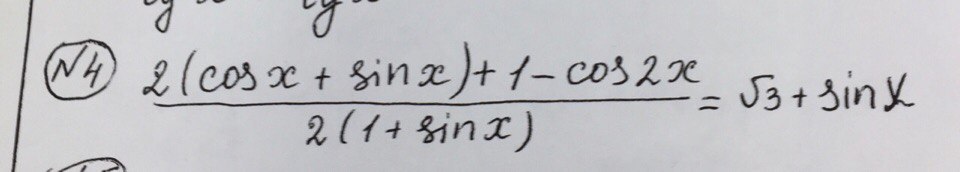 №4 2(cos x + sin x) + 1 - cos 2x
2(1 + sin x)
= √3 + sin x